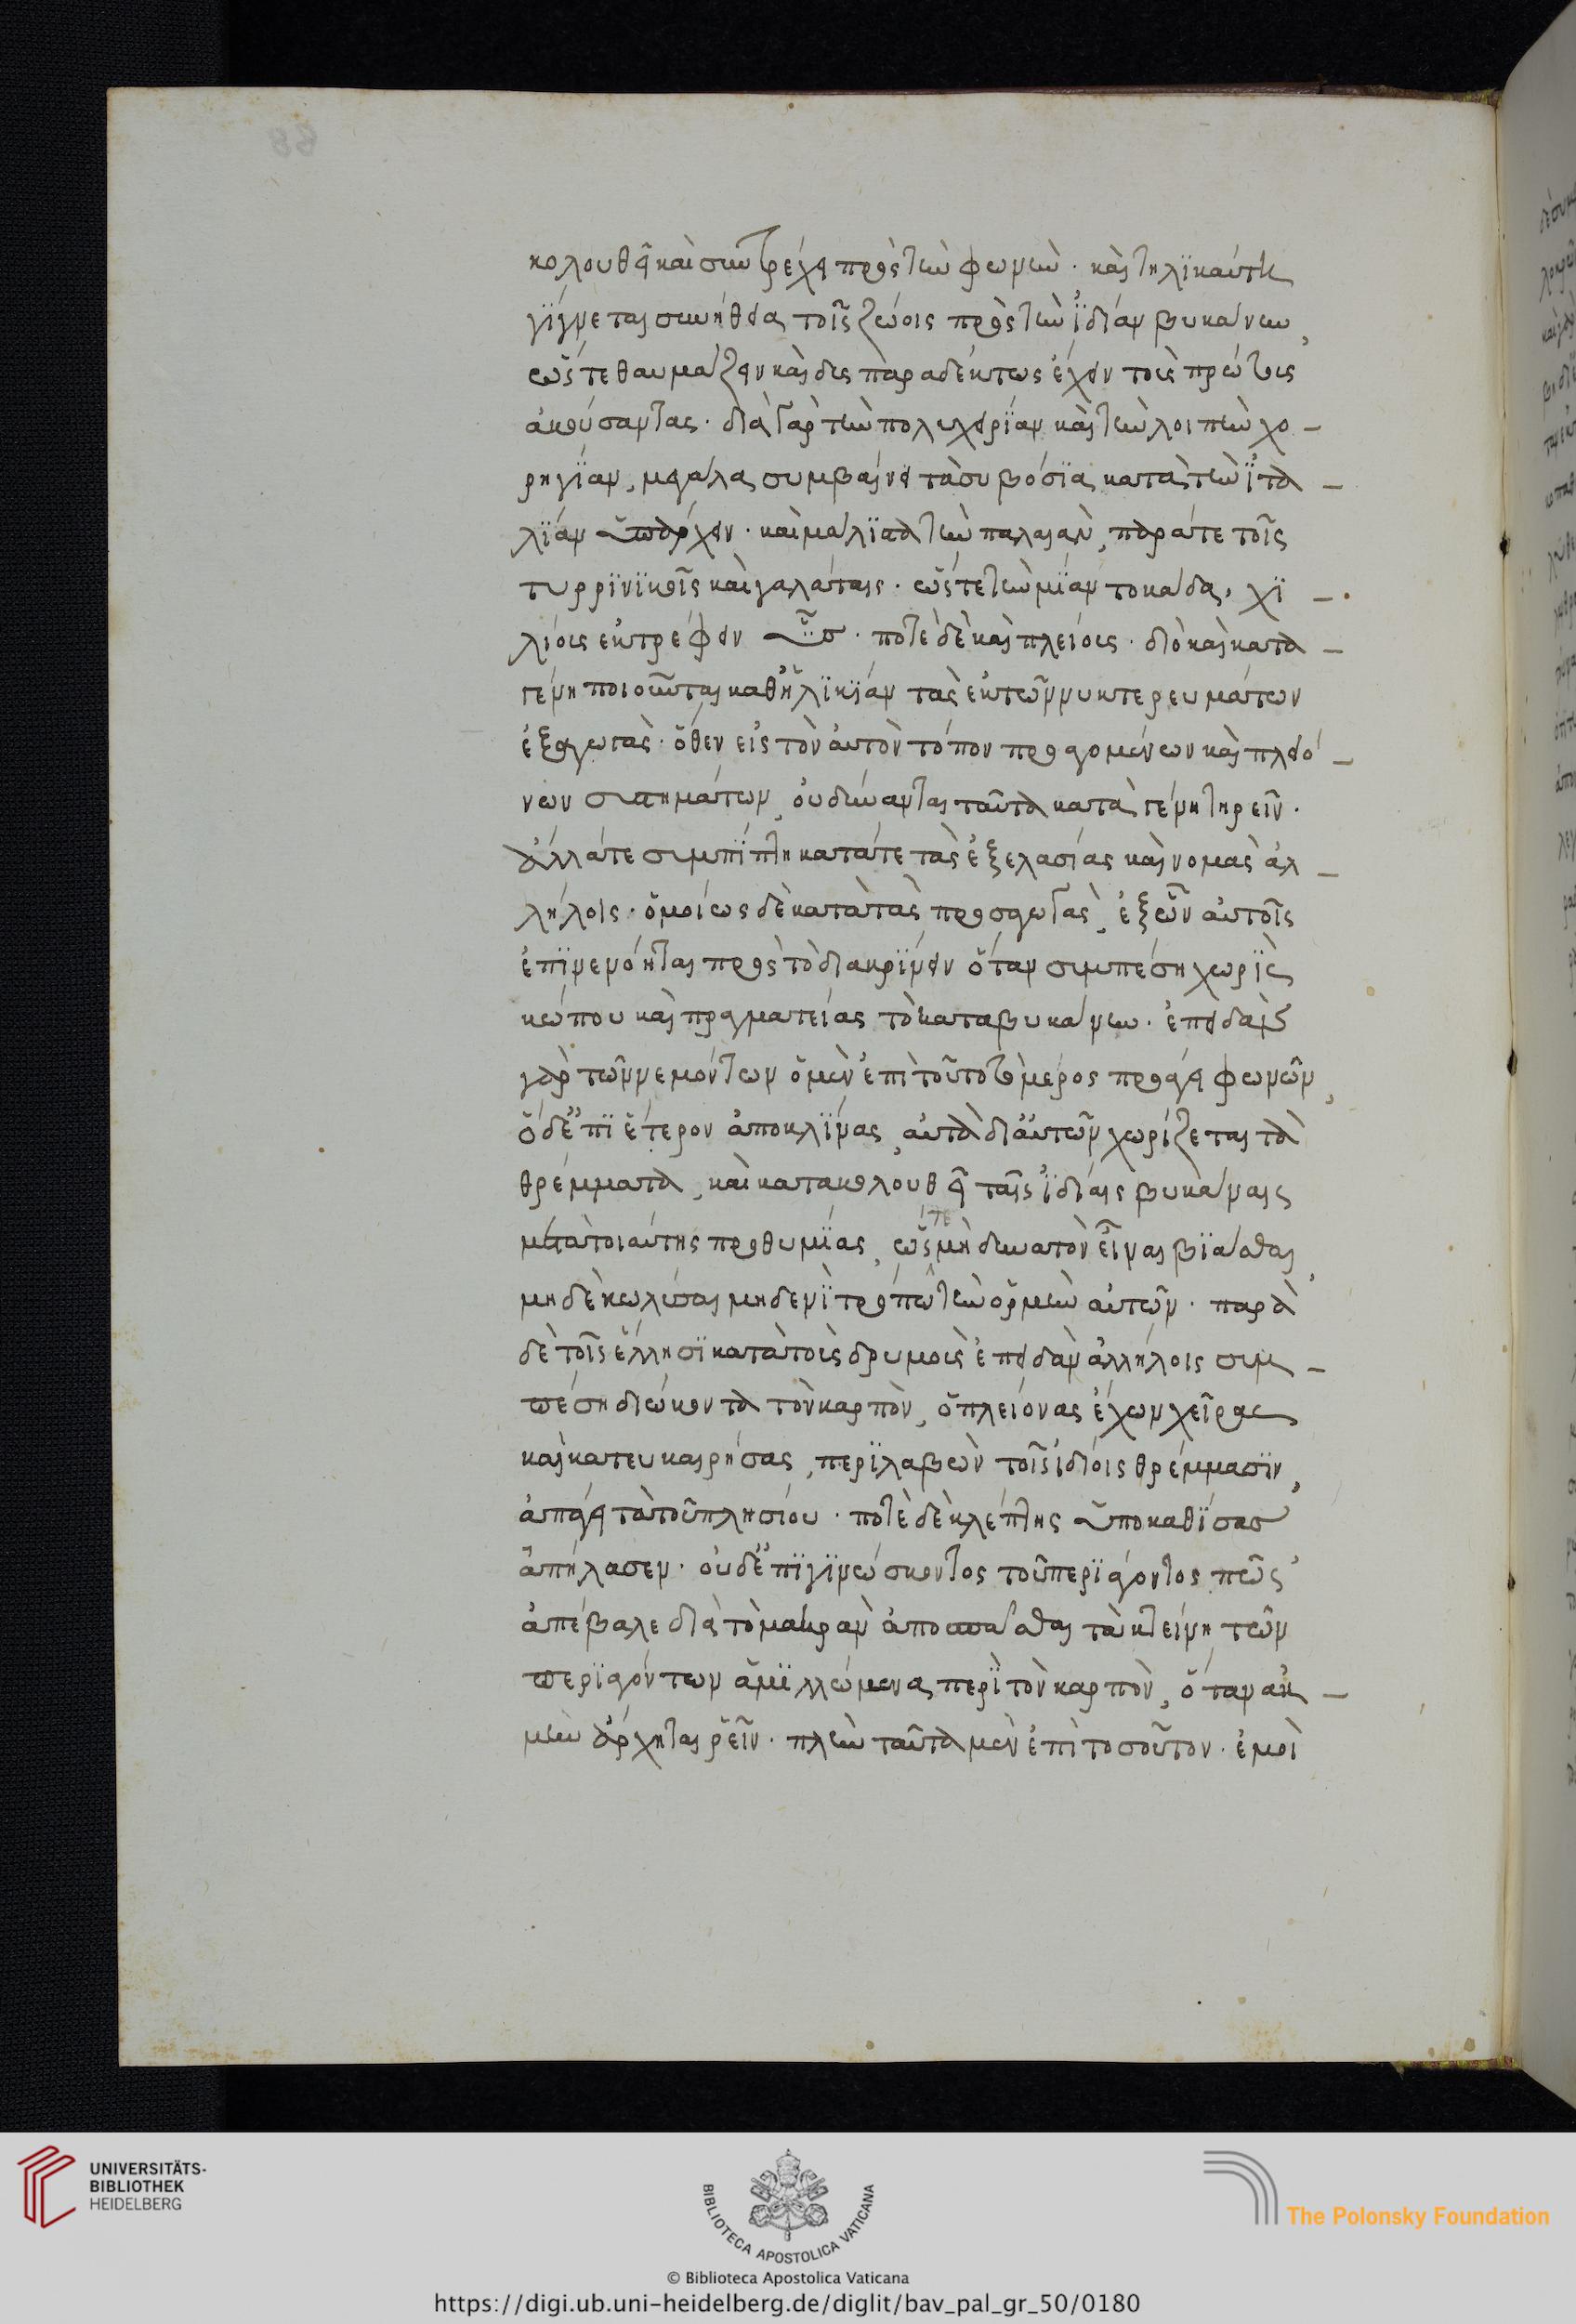 κολουθεῖ καὶ συντρέχει πρὸς τὴν φωνήν · καὶ τηλϊκαύτη
γϊγνεται συνήθεια τοῖς ζώοις πρὸς τὴν ἰδίαν βυκάνην,
ὥστε θαυμάζειν καὶ δυσπαραδέκτως ἔχειν τοὺς πρώτως
ἀκούσαντας · διὰ γὰρ τὴν πολυχειρίαν καὶ τὴν λοιπὴν χο–
ρηγίαν, μεγάλα συμβαίνει τὰ συβόσια κατὰ τὴν ἰτα–
λίαν ὑπάρχειν · καὶ μάλιστα τὴν παλαιὰν, παρά τε τοῖς
τυρρϊνϊκοῖς καὶ γαλάταις · ὥστε τὴν μίαν τοκάδα, χϊ–
λίους ἐκτρέφειν ὗς · ποτὲ δὲ καὶ πλείους · διὸ καὶ κατὰ–
γένη ποιοῦνται καθ᾽ ἡλϊκίαν τὰς ἐκ τῶν νυκτερευμάτων
ἐξαγωγὰς · ὅθεν εἰς τὸν αὐτὸν τόπον προαγομένων καὶ πλειό–
νων συστημάτων, οὐ δύνανται ταῦτα κατὰ γένη τηρεῖν ·
ἀλλά τε συμπίπτη κατά τε τὰς ἐξελασίας καὶ νομὰς ἀλ–
λήλοις · ὁμοίως δὲ κατὰ τὰς προσαγωγὰς, ἐξ ὧν αὐτοῖς
ἐπϊνενόηται πρὸς τὸ διακρίνειν ὅταν συμπέση χωρὶς
κώπου καὶ πραγματείας τὸ κατα βυκάνην · ἐπειδὰν
γὰρ τῶν νεμόντων ὁ μὲν ἐπὶ τοῦτο τὸ μέρος προάγει φωνῶν,
ὁ δ᾽ ἐπϊ ἕτερον ἀποκλίνας, αὐτὰ δι᾽ αὑτῶν χωρίζεται τὰ
θρέμματα, καὶ κατακολουθεῖ ταῖς ἰδίαις βυκάναις
μετὰ τοιαύτης προθυμίας, ὥστε μὴ δυνατὸν εἶναι βιάσασθαι,
μηδὲ κωλύσαι μηδενὶ τρόπω τὴν ὁρμὴν αὐτῶν · παρὰ
δὲ τοῖς ἕλλησϊ κατὰ τοὺς δρυμοὺς ἐπειδὰν ἀλλήλοις συμ–
πέση διώκοντα τὸν καρπὸν, ὁ πλείονας ἔχων χεῖρας
καὶ κατευκαιρήσας, περϊλαβὼν τοῖς ἰδίοις θρέμμασϊν,
ἀπάγει τὰ τοῦ πλησίου · ποτὲ δὲ κλέπτης ὑποκαθίσας
ἀπήλασεν · οὐδ᾽ ἐπϊγϊνώσκοντος τοῦ περϊάγοντος πῶς
ἀπέβαλε διὰ τὸ μακρὰν ἀποσπᾶσθαι τὰ κτείνη τῶν
περϊαγόντων ἁμϊλλώμενα περὶ τὸν καρπὸν, ὅταν ἀκ–
μὴν ἄρχηται ῥεῖν · πλὴν ταῦτα μὲν ἐπὶ τοσοῦτον · ἐμοὶ
UNIVERSITÄTS-
BIBLIOTHEK
HEIDELBERG
BIBLIOTECA APOSTOLICA VATICANA
The Polonsky Foundation
© Biblioteca Apostolica Vaticana
https://digi.ub.uni-heidelberg.de/diglit/bav_pal_gr_50/0180